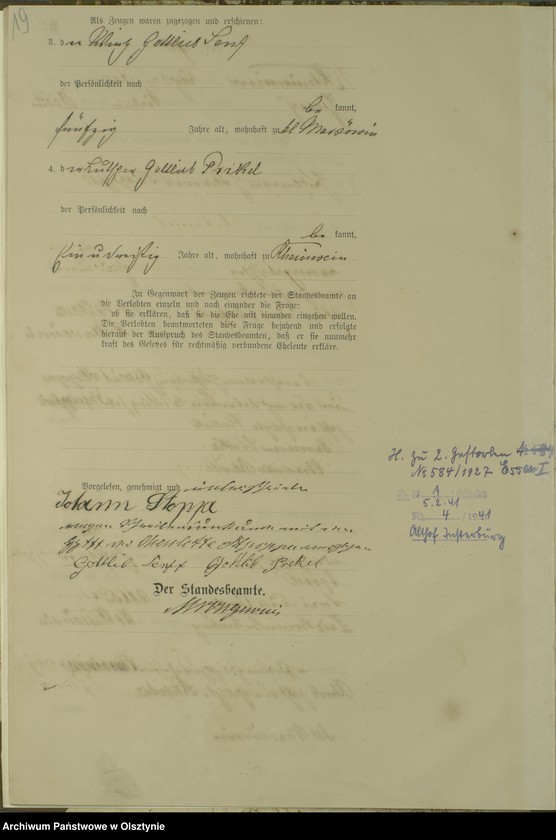 19
Als Zeugen waren zugezogen und erschienen:
3. der Wirt Gottlieb Senf
der Persönlichkeit nach
be kannt,
fünfzig Jahre alt, wohnhaft zu kl Marxöwen
4. der Gottlieb Prikel
der Persönlichkeit nach
be kannt,
ein u dreißig Jahre alt, wohnhaft zu Rheinswein
In Gegenwart der Zeugen richtete der Standesbeamte an
die Verlobten einzeln und nach einander die Frage:
ob sie erklären, daß sie die Ehe mit einander eingehen wollen.
Die Verlobten beantworteten diese Frage bejahend und erfolgte
hierauf der Ausspruch des Standesbeamten, daß er sie nunmehr
kraft des Gesetzes für rechtmäßig verbundene Eheleute erkläre.
H. zu 2. Gestorben
No 584/1927 I
Vorgelesen, genehmigt und unterschrieben
Johann Stopa
5.2.41
4 /1941
wegen Schreibensunkunde mit
Althof Insterburg
Gottlib Senff Gottlib Prikel
Der Standesbeamte.
Archiwum Państwowe w Olsztynie